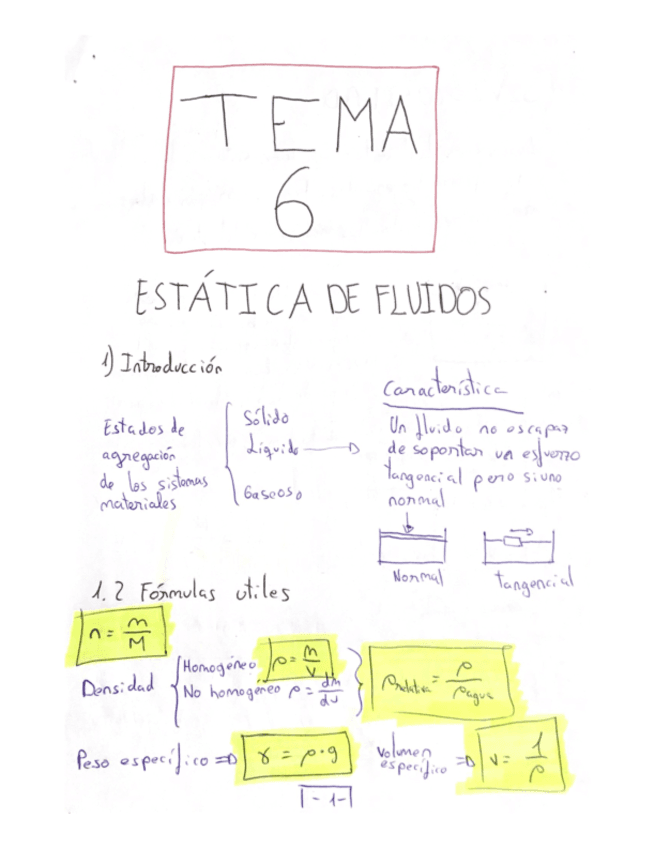 TEMA
6
ESTÁTICA DE FLUIDOS
1) Introducción
Estados de
agregación
de los sistemas
materiales
Sólido
Líquido
Gaseoso
Característica
Un fluido no es capaz
de soportar un esfuerzo
tangencial pero si uno
normal
Normal
tangencial
1.2 Fórmulas utiles
n = m/M
Densidad
Homogéneo ρ = m/V
No homogéneo ρ = dm/dv
ρrelativa = ρ/ρagua
Peso específico ⇒ γ = ρ·g
Volumen
específico ⇒ v = 1/ρ
-1-